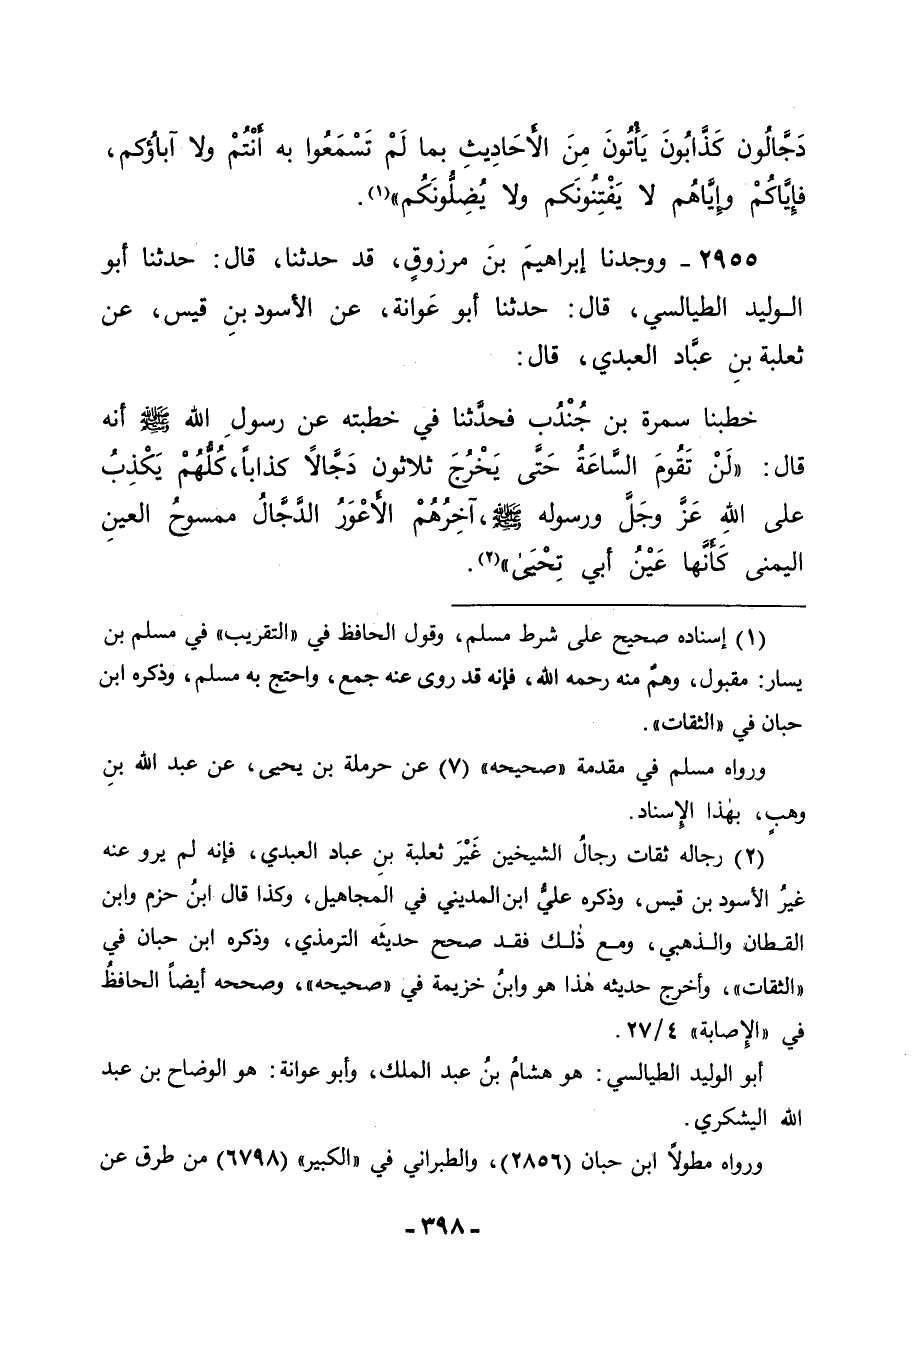 دَجَّالُون كَذَّابُونَ يَأْتُونَ مِنَ الأَحَادِيثِ بما لَمْ تَسْمَعُوا به أَنْتُمْ ولا آباؤكم،
فإِيَّاكُمْ وإِيَّاهُم لا يَفْتِنُونَكم ولا يُضِلُّونَكُم»(١).
٢٩٥٥ - ووجدنا إبراهيمَ بنَ مرزوقٍ، قد حدثنا، قال: حدثنا أبو
الوليد الطيالسي، قال: حدثنا أبو عَوانة، عن الأسود بنِ قيس، عن
ثعلبة بنِ عبَّاد العبدي، قال:
خطبنا سمرة بن جُنْدُب فحدَّثنا في خطبته عن رسولِ الله ﷺ أنه
قال: «لَنْ تَقُومَ السَّاعَةُ حَتَّى يَخْرُجَ ثلاثون دَجَّالاً كذاباً، كُلُّهُمْ يَكْذِبُ
على اللهِ عَزَّ وجَلَّ ورسوله ﷺ، آخِرُهُمْ الأَعْوَرُ الدَّجَّالُ ممسوحُ العينِ
اليمنى كَأَنَّها عَيْنُ أبي تِحْيَىٰ»(٢).
(١) إسناده صحيح على شرط مسلم، وقول الحافظ في «التقريب» في مسلم بن
يسار: مقبول، وهمٌ منه رحمه الله، فإنه قد روى عنه جمع، واحتج به مسلم، وذكره ابن
حبان في «الثقات».
ورواه مسلم في مقدمة «صحيحه» (٧) عن حرملة بن يحيى، عن عبد الله بنِ
وهبٍ، بهٰذا الإِسناد.
(٢) رجاله ثقات رجالُ الشيخين غَيْرَ ثعلبة بنِ عباد العبدي، فإنه لم يرو عنه
غيرُ الأسود بن قيس، وذكره عليُّ ابن المديني في المجاهيل، وكذا قال ابنُ حزم وابن
القطان والذهبي، ومع ذٰلك فقد صحح حديثَه الترمذي، وذكره ابن حبان في
«الثقات»، وأخرج حديثه هٰذا هو وابنُ خزيمة في «صحيحه»، وصححه أيضاً الحافظُ
في «الإِصابة» ٢٧/٤.
أبو الوليد الطيالسي: هو هشامُ بنُ عبد الملك، وأبو عوانة: هو الوضاح بن عبد
الله اليشكري.
ورواه مطولاً ابن حبان (٢٨٥٦)، والطبراني في «الكبير» (٦٧٩٨) من طرق عن
- ٣٩٨ -